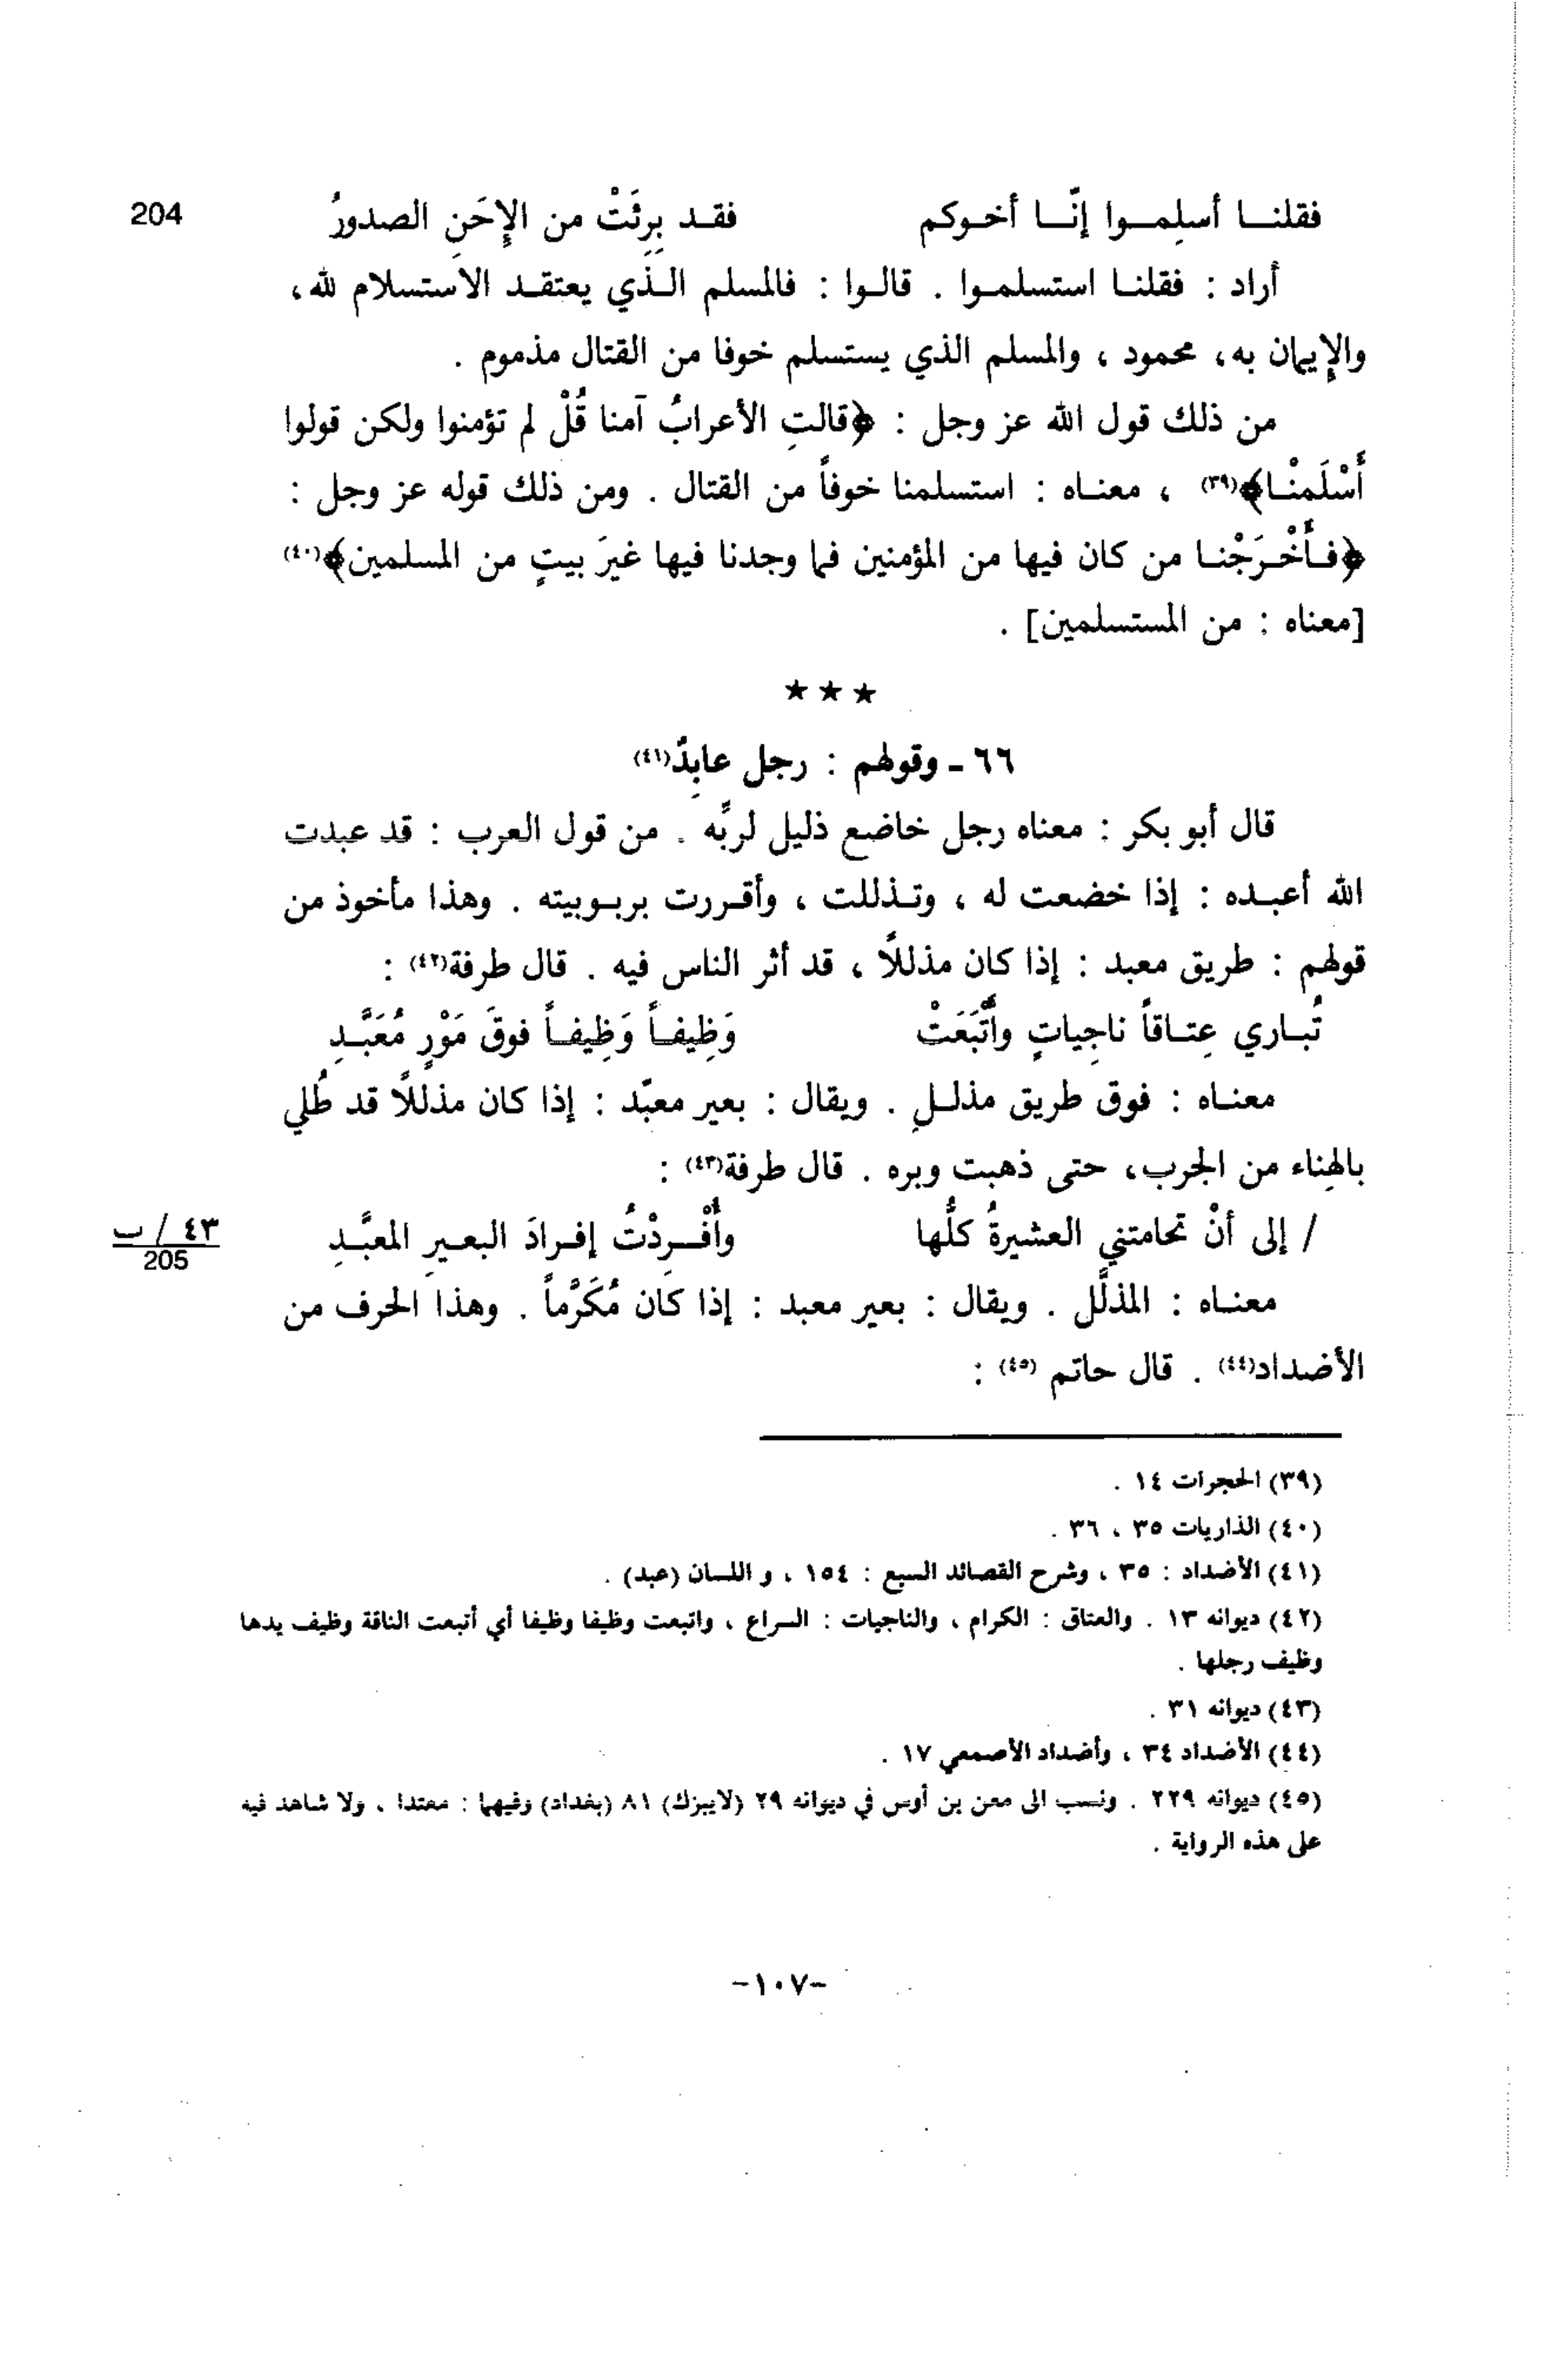 فقلنــا أسلِمــوا إنّــا أخـوكم فقـد بِرِئَتْ من الإِحَنِ الصدورُ 204
أراد : فقلنـا استسلمـوا . قالـوا : فالمسلم الـذي يعتقـد الاستسلام لله،
والإيمان به، محمود ، والمسلم الذي يستسلم خوفا من القتال مذموم .
من ذلك قول الله عز وجل : ﴿قالتِ الأعرابُ آمنا قُلْ لم تؤمنوا ولكن قولوا
أَسْلَمنْنا﴾(٣٩) ، معنـاه : استسلمنا خوفاً من القتال . ومن ذلك قوله عز وجل :
﴿فـأَخْـرَجْنـا من كان فيها من المؤمنين فما وجدنا فيها غيرَ بيتٍ من المسلمين﴾(٤٠)
[معناه : من المستسلمين] .
★ ★ ★
٦٦ - وقولهم : رجل عابِدٌ(٤١)
قال أبو بكر : معناه رجل خاضع ذليل لربِّه . من قول العرب : قد عبدت
الله أعبـده : إذا خضعت له ، وتـذللت ، وأقـررت بربـوبيته . وهذا مأخوذ من
قولهم : طريق معبد : إذا كان مذللاً ، قد أثر الناس فيه . قال طرفة(٤٢) :
تُبـاري عِتـاقاً ناجِياتٍ وأَتْبَعَتْ وَظِيفـاً وَظِيفـاً فوقَ مَوْرٍ مُعَبَّـدِ
معنـاه : فوق طريق مذلـلٍ . ويقال : بعير معبّد : إذا كان مذللاً قد طُلي
بالهِناء من الجرب، حتى ذهبت وبره . قال طرفة(٤٣) :
/ إلى أنْ تحامتني العشيرةُ كلُّها وأُفْـرِدْتُ إفـرادَ البعـيرِ المعبَّـدِ ٤٣ / ب
205
معنـاه : المذلَّل . ويقال : بعير معبد : إذا كان مُكَرَّماً . وهذا الحرف من
الأضداد(٤٤) . قال حاتم (٤٥) :
(٣٩) الحجرات ١٤ .
(٤٠) الذاريات ٣٥ ، ٣٦ .
(٤١) الأضداد : ٣٥ ، وشرح القصائد السبع : ١٥٤ ، و اللسان (عبد) .
(٤٢) ديوانه ١٣ . والعتاق : الكرام ، والناجيات : السراع ، واتبعت وظيفا وظيفا أي أتبعت الناقة وظيف يدها
وظيف رجلها .
(٤٣) ديوانه ٣١ .
(٤٤) الأضداد ٣٤ ، وأضداد الأصمعي ١٧ .
(٤٥) ديوانه ٢٢٩ . ونسب الى معن بن أوس في ديوانه ٢٩ (لايبزك) ٨١ (بغداد) وفيهما : معتدا ، ولا شاهد فيه
على هذه الرواية .
-١٠٧-